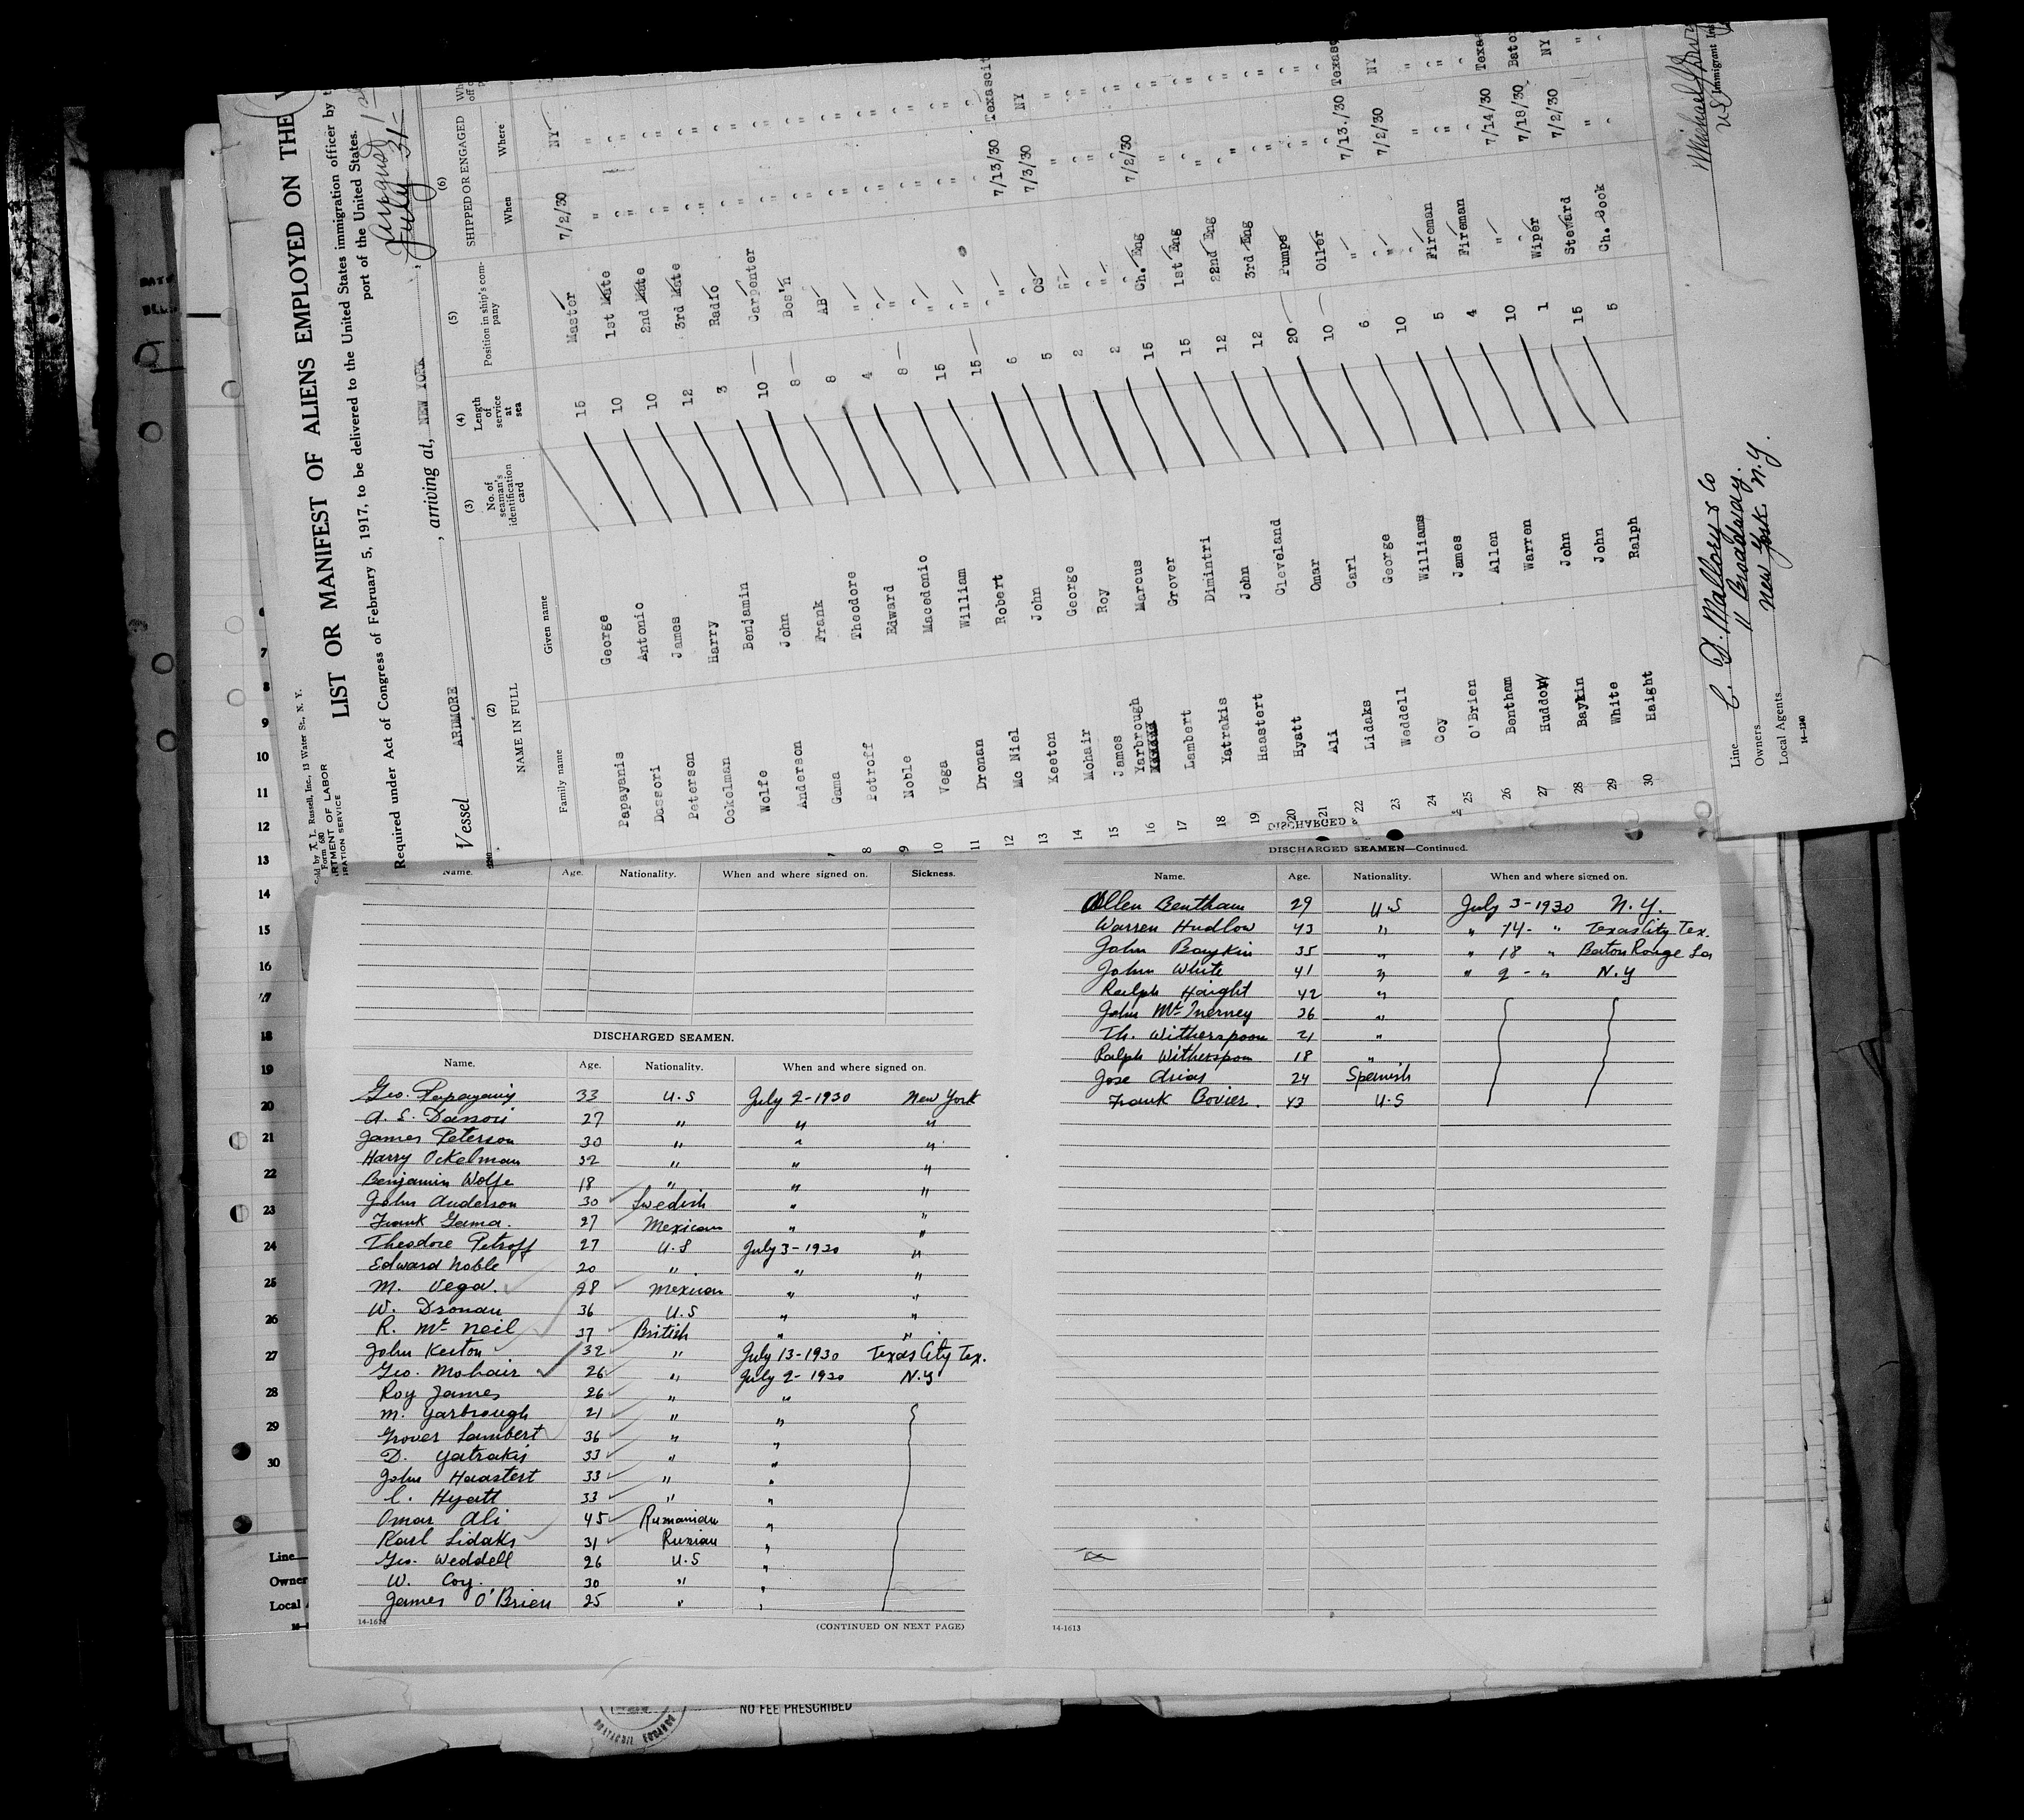 Sold by A. L. Russell, Inc., 13 Water St., N. Y.
Form 680
LIST OR MANIFEST OF ALIENS EMPLOYED ON THE
Required under Act of Congress of February 5, 1917, to be delivered to the United States immigration officer by
port of the United States.
Vessel ARDMORE, arriving at, NEW YORK, August 1 July 31-
(2) NAME IN FULL (3) No. of seaman's identification card (4) Length of service at sea (5) Position in ship's company (6) SHIPPED OR ENGAGED
Family name Given name When Where
Papayanis George 15 Master 7/2/30 NY
Dassori Antonio 10 1st Mate " "
Peterson James 10 2nd Mate " "
Ockelman Harry 12 3rd Mate " "
Wolfe Benjamin 3 Radio " "
Anderson John 10 Carpenter " "
7 Gama Frank 8 Bos'n " "
8 Petroff Theodore 8 AB " "
9 Noble Edward 4 " " "
10 Vega Macedonio 8 " " "
11 Dronan William 15 " " "
12 Mc Niel Robert 15 " " "
13 Keeton John 6 " 7/13/30 Texascit
14 Mohair George 5 OS 7/3/30 NY
15 James Roy 2 " " "
16 Yarbrough Marcus 2 " " "
17 Lambert Grover 15 Ch. Eng 7/2/30 "
18 Yatrakis Dimintri 15 1st Eng " "
19 Haastert John 12 22nd Eng " "
20 Hyatt Cleveland 12 3rd Eng " "
21 Ali Omar 20 Pumps " "
22 Lidaks Carl 10 Oiler " "
23 Weddell George 6 " 7/13./30 Texasc
24 Coy Williams 10 " 7/2/30 NY
25 O'Brien James 5 Fireman " "
26 Bentham Allen 4 Fireman " "
27 Huddow Warren 10 " 7/14/30 Texas
28 Baykin John 1 Wiper 7/18/30 Bato
29 White John 15 Steward 7/2/30 NY
30 Haight Ralph 5 Ch. Cook " "
Line C. D. Mallory & Co
Owners 11 Broadway.
Local Agents New York. N.Y.
14-1240
Immigrant In
Name. Age. Nationality. When and where signed on. Sickness.
DISCHARGED SEAMEN.
Name. Age. Nationality. When and where signed on.
Geo. Papayanis 33 U.S July 2-1930 New York
A. S. Dassori 27 " " "
James Peterson 30 " " "
Harry Ockelman 32 " " "
Benjamin Wolfe 18 " " "
John Anderson 30 Swedish " "
Frank Gama. 27 Mexican " "
Theodore Petroff 27 U.S July 3-1930 "
Edward Noble 20 " " "
M. Vega. 28 Mexican " "
W. Dronan 36 U.S " "
R. Mc Neil 37 British " "
John Keeton 32 " July 13-1930 Texas City Tex.
Geo. Mohair 26 " July 2-1930 N.Y
Roy James 26 " "
M. Yarbrough 21 " "
Grover Lambert 36 " "
D. Yatrakis 33 " "
John Haastert 33 " "
C. Hyatt 33 " "
Omar Ali 45 Rumanian "
Karl Lidaks 31 Rusian "
Geo. Weddell 26 U.S "
W. Coy. 30 " "
James O'Brien 25 " "
(CONTINUED ON NEXT PAGE)
DISCHARGED SEAMEN—Continued.
Name. Age. Nationality. When and where signed on.
Allen Bentham 29 U.S July 3-1930 N.Y.
Warren Hudlow 43 " " 14- " Texas City Tex.
John Baykin 35 " " 18 " Baton Rouge La
John White 41 " " 2 - " N.Y
Ralph Haight 42 "
John Mc Inerney 36 "
Th. Witherspoon 21 "
Ralph Witherspoon 18 "
Jose Arias 24 Spenish
Frank Bovier. 43 U.S
14-1613
6
7
8
9
10
11
12
13
14
15
16
17
18
19
20
21
22
23
24
25
26
27
28
29
30
Line
Owner
Local
NO FEE PRESCRIBED